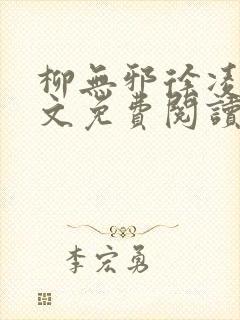 柳無邪徐凌
文免費閱讀
李宏勇